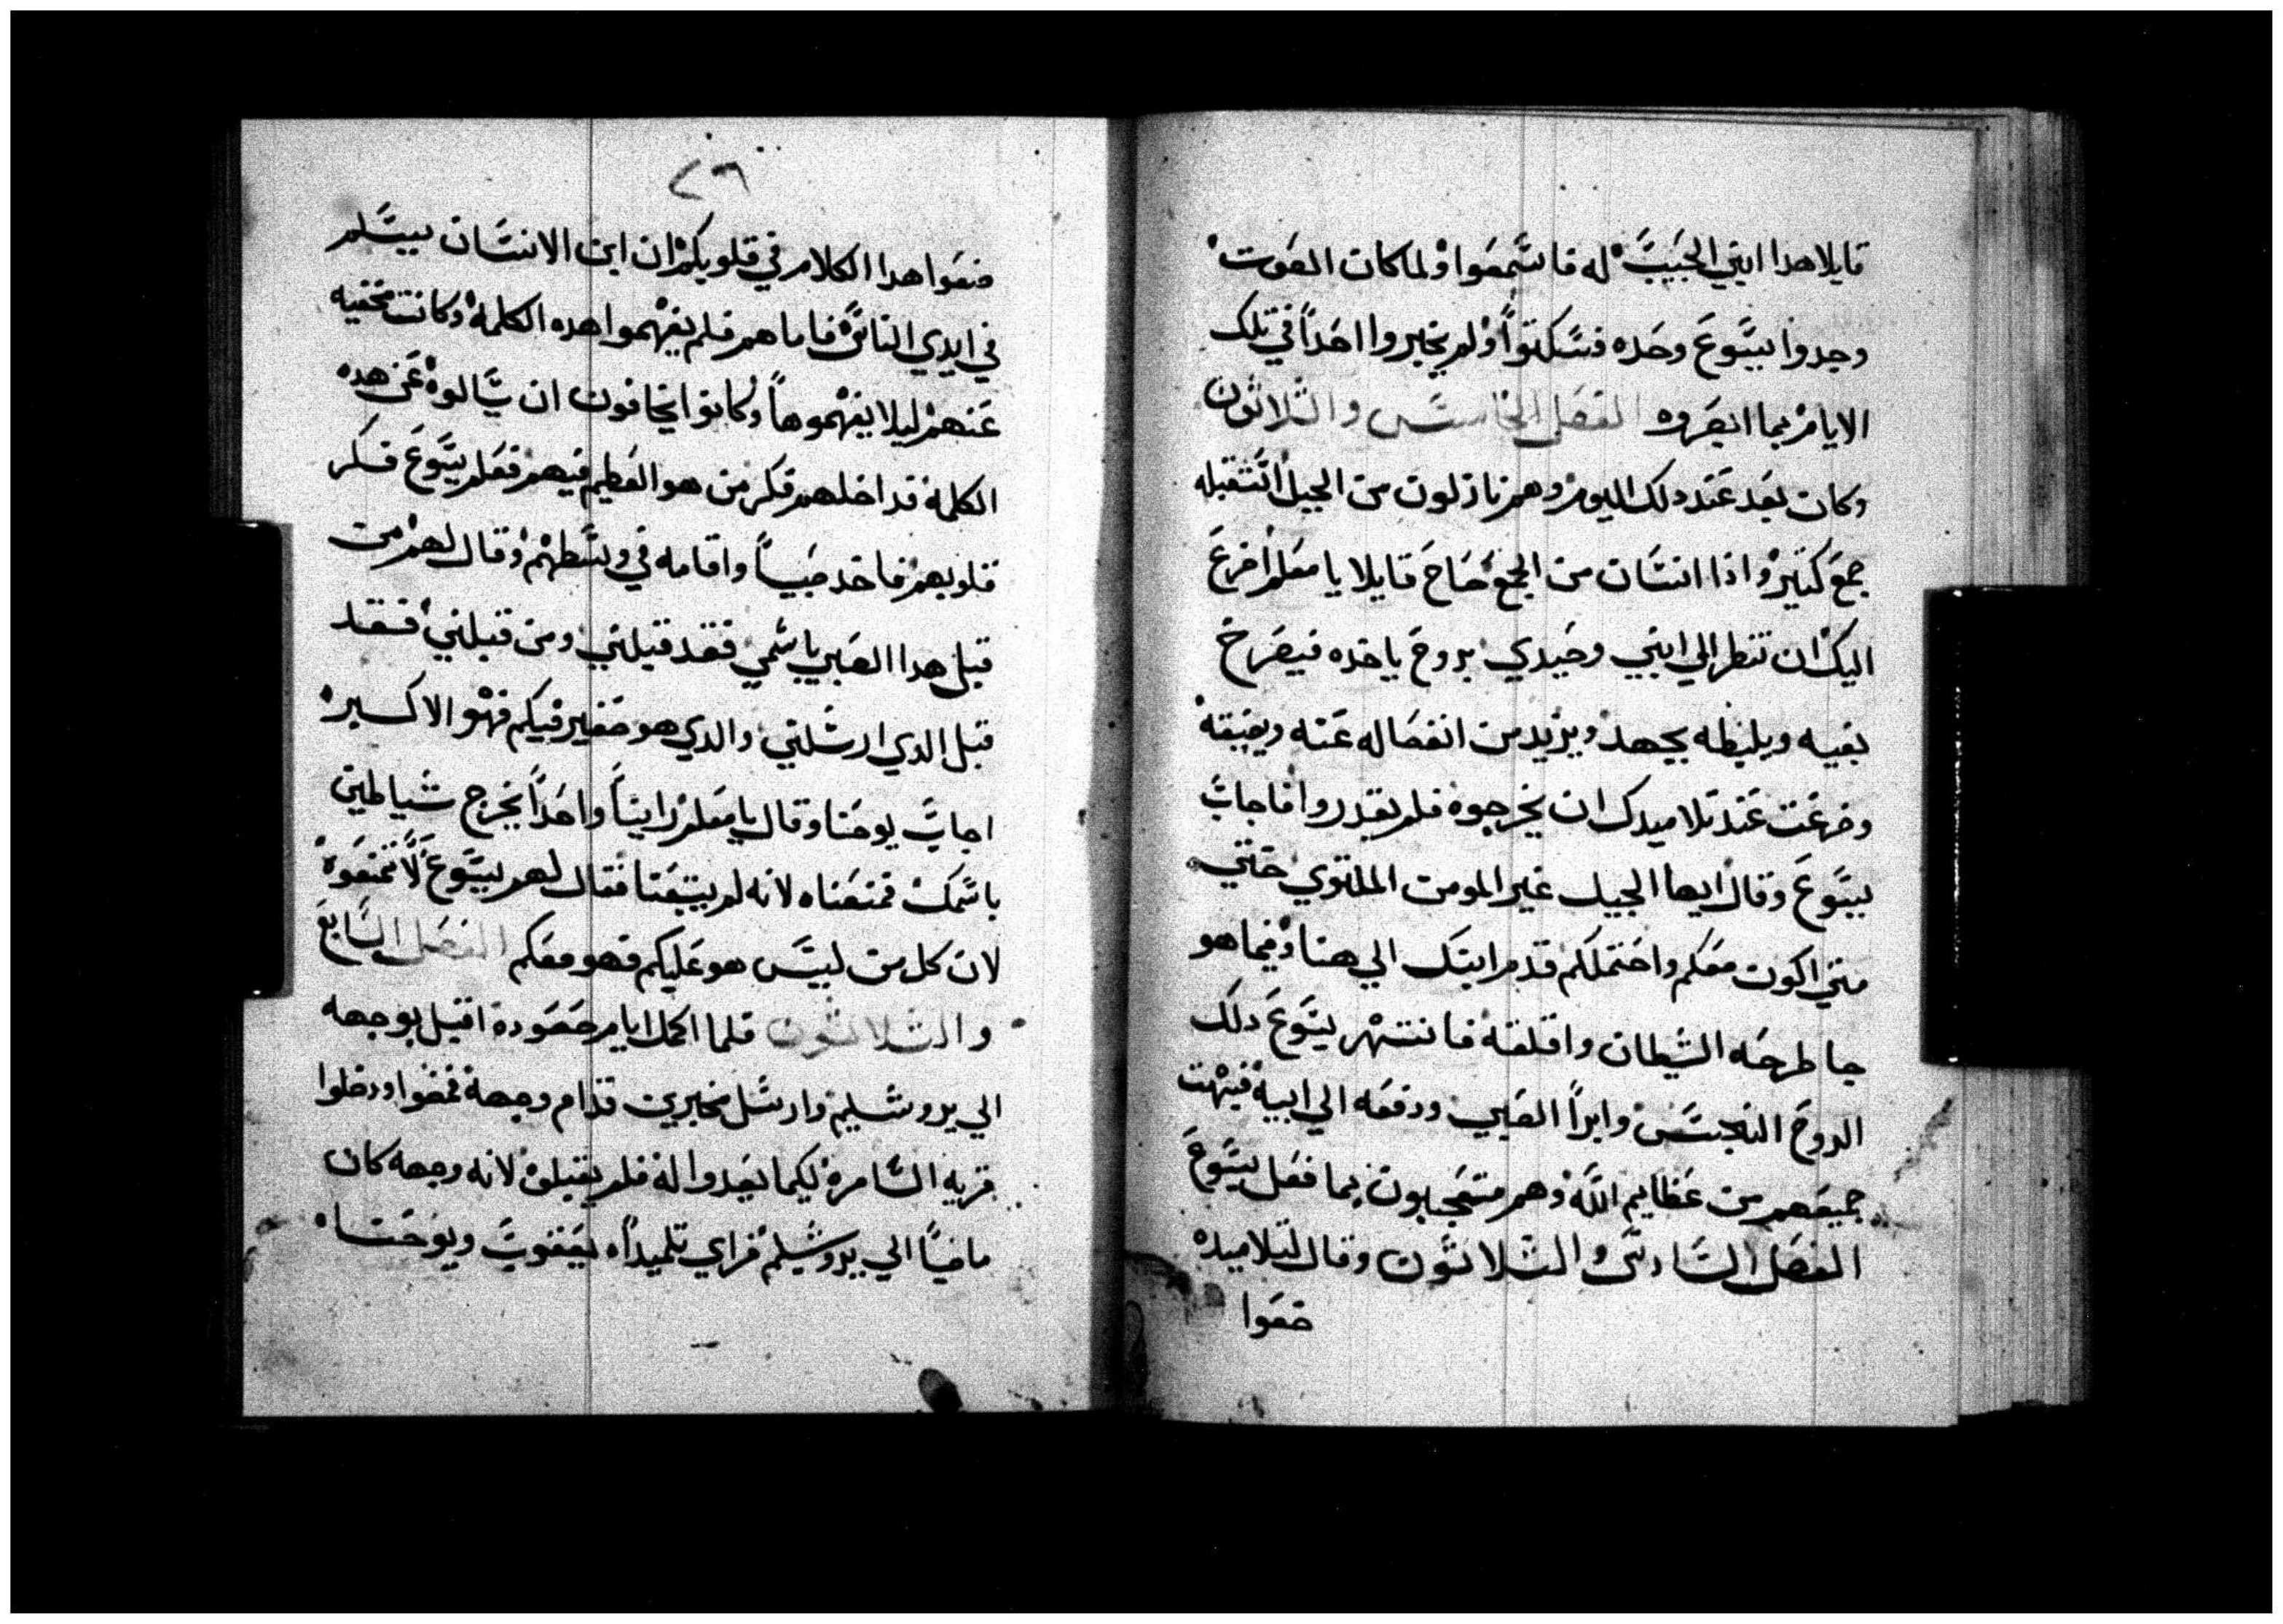 قايلا هدا ابني الحبيب له فاسمعوا ولما كان الصوت
وجدوا يسوع وحده فسكتوا ولم يخبروا احداً في تلك
الايام بما ابصروه الفصل الخامس والثلاثون
وكان بعد عند دلك اليوم وهم نازلون من الجبل استقبله
جمع كثير واذا انسان من الجمع صاح قايلا يا معلم اضرع
اليك ان تنظر الي ابني وحيدي بروح ياخده فيصرخ
بغيه ويليطه بجهد ويزيد من انفصاله عنه ويضيقه
وضرعت عند تلاميدك ان يخرجوه فلم يقدروا فاجاب
يسوع وقال ايها الجيل غير المومن الملتوي حتي
متي اكون معكم واحتملكم قدم ابنك الي هنا وفيما هو
جا طرحه الشيطان واقلقه فانتهر يسوع دلك
الروح النجس وابرا الصبي ودفعه الي ابيه فبهت
جميعهم من عظايم الله وهم متعجبون بما فعل يسوع
الفصل السادس والثلاثون وقال لتلاميده
ضعوا
٢٦
ضعوا هدا الكلام في قلوبكم ان ابن الانسان يسلم
في ايدي الناس فاما هم فلم يفهموا هده الكلمة وكانت مخفيه
عنهم ليلا يفهموها وكانوا يخافون ان يسالوه عن هده
الكلمة فداخلهم فكر من هو العظيم فيهم فعلم يسوع فكر
قلوبهم فاخد صبياً واقامه في وسطهم وقال لهم من
قبل هدا الصبي باسمي فقد قبلني ومن قبلني فقد
قبل الدي ارسلني والدي هو صغير فيكم فهو الاكبر
اجاب يوحنا وقال يا معلم راينا واحداً يخرج شياطين
باسمك فمنعناه لانه لم يتبعنا فقال لهم يسوع لا تمنعوه
لان كل من ليس هو عليكم فهو معكم الفصل السابع
والثلاثون فلما اكمل ايام صعوده اقبل بوجهه
الي يروشليم وارسل مخبرين قدام وجهه فمضوا ودخلوا
قريه السامرة ليكما يعدوا له فلم يقبلوه لانه وجهه كان
ماضياً الي يروشليم فراي تلميداه يعقوب ويوحنا